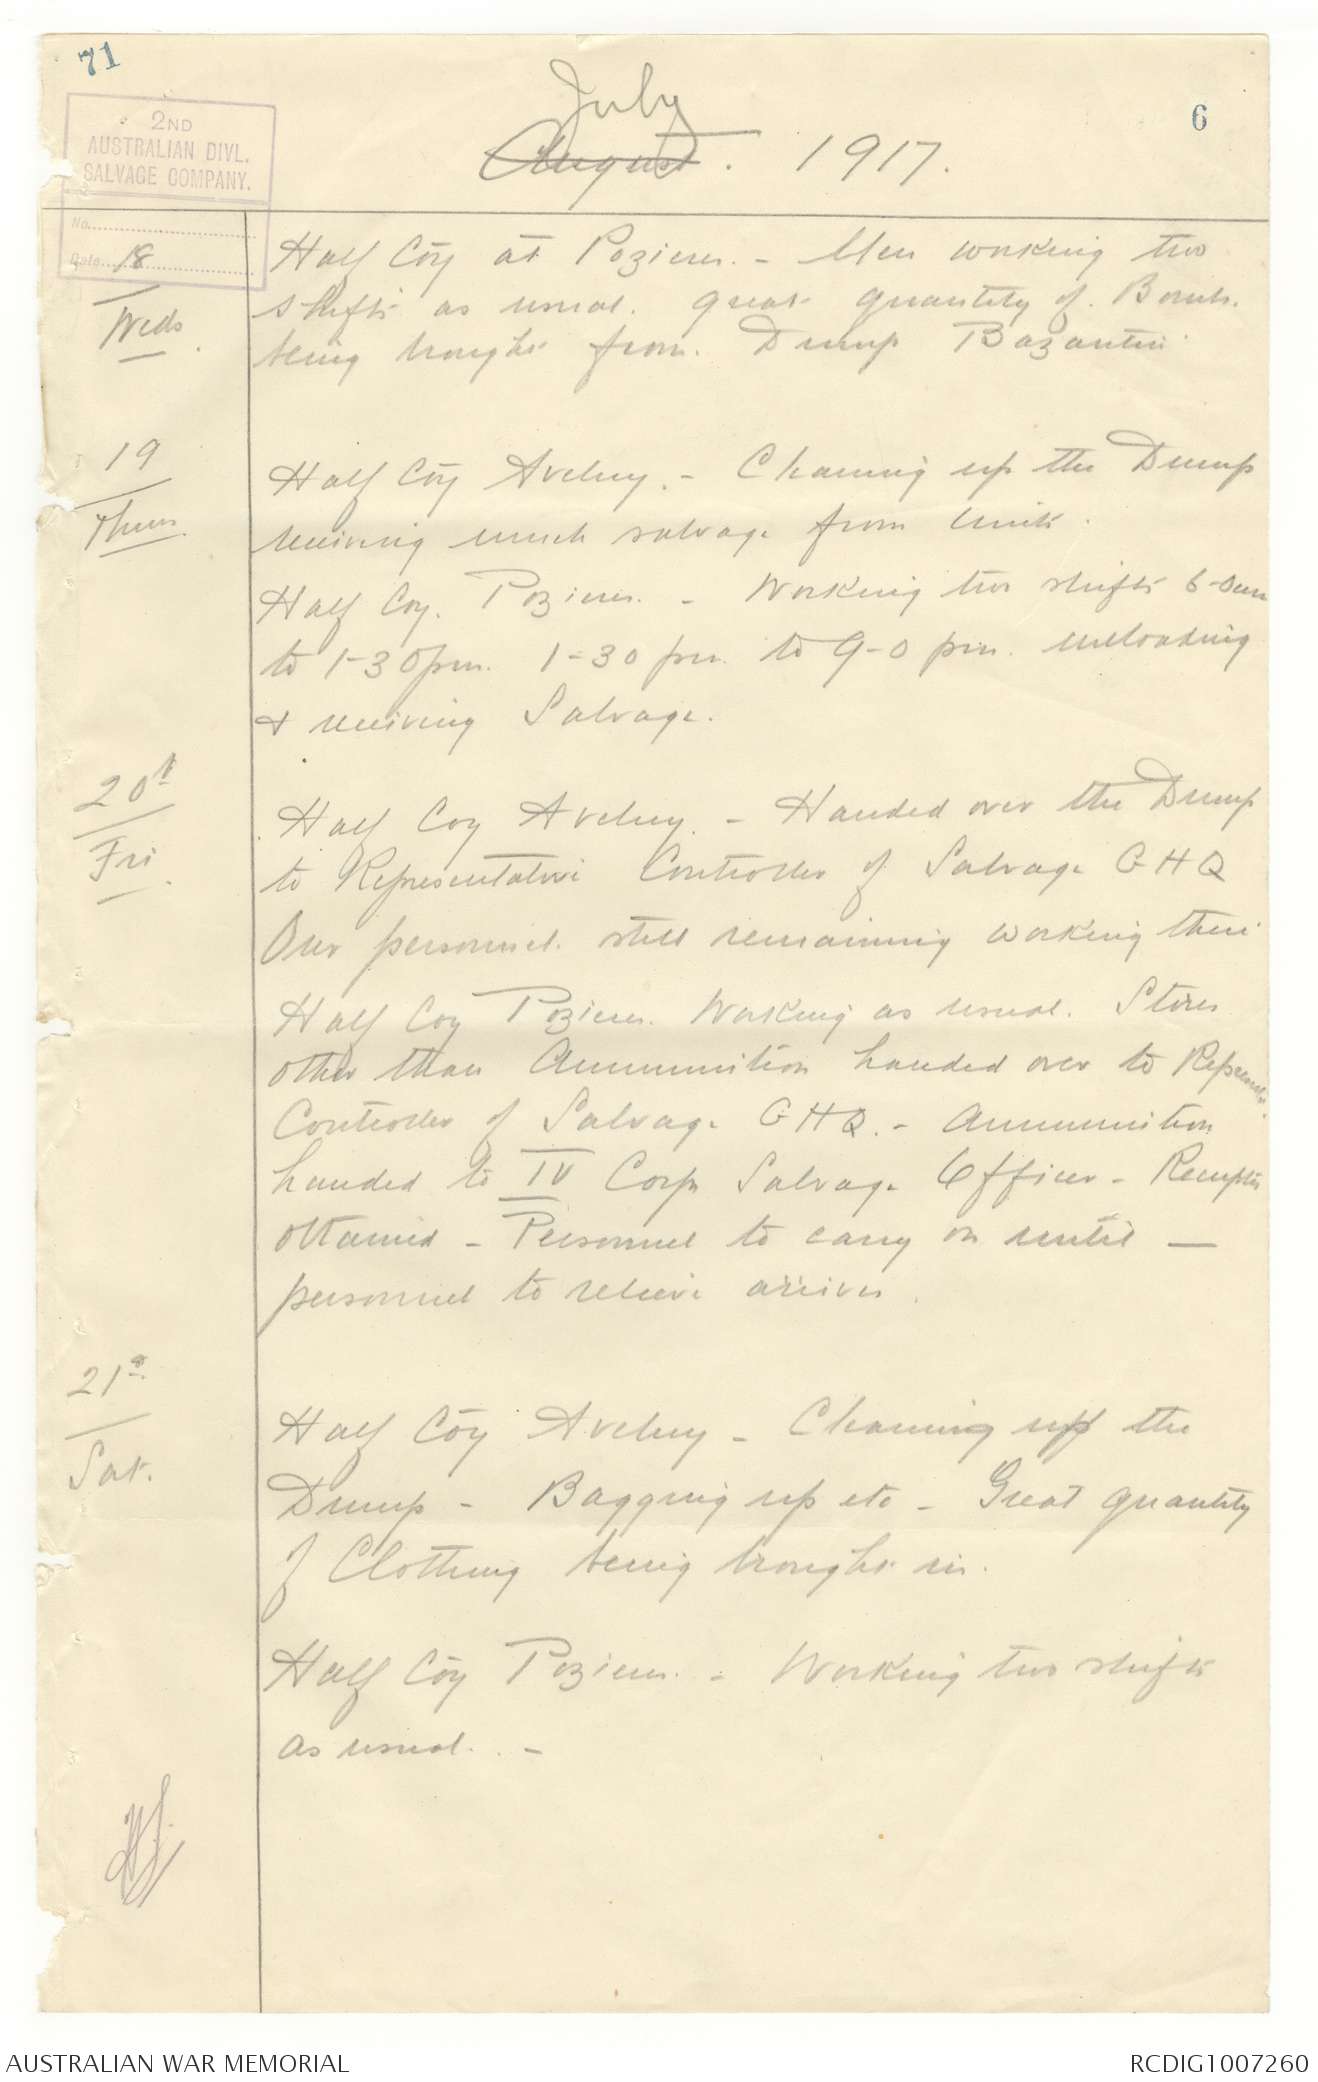 71
6
2ND
AUSTRALIAN DIVL.
SALVAGE COMPANY.
No.
Date 18
July
August. 1917.
Weds.
Half Coy at Pozieres. - Men working two
shifts as usual. great quantity of Bombs.
being brought from. Dump Bazantin.
19
Thurs.
Half Coy Aveluy. - Cleaning up the Dump
receiving much salvage from units.
Half Coy. Pozieres. - Working two shifts 6-0am
to 1-30pm. 1-30 pm. to 9-0 pm. unloading
& receiving Salvage.
20th
Fri.
Half Coy Aveluy. - Handed over the Dump
to Representative Controller of Salvage GHQ
Our personnel still remaining working there
Half Coy Pozieres. Working as usual. Stores
other than Ammunition handed over to
Controller of Salvage GHQ. - Ammunition
handed to IV Corps Salvage Officer - Receipts
obtained - Personnel to carry on until -
personnel to relieve arrives.
21st
Sat.
Half Coy Aveluy - Cleaning up the
Dump - Bagging up etc - Great quantity
of Clothing being brought in.
Half Coy Pozieres. - Working two shifts
as usual. -
AUSTRALIAN WAR MEMORIAL
RCDIG1007260